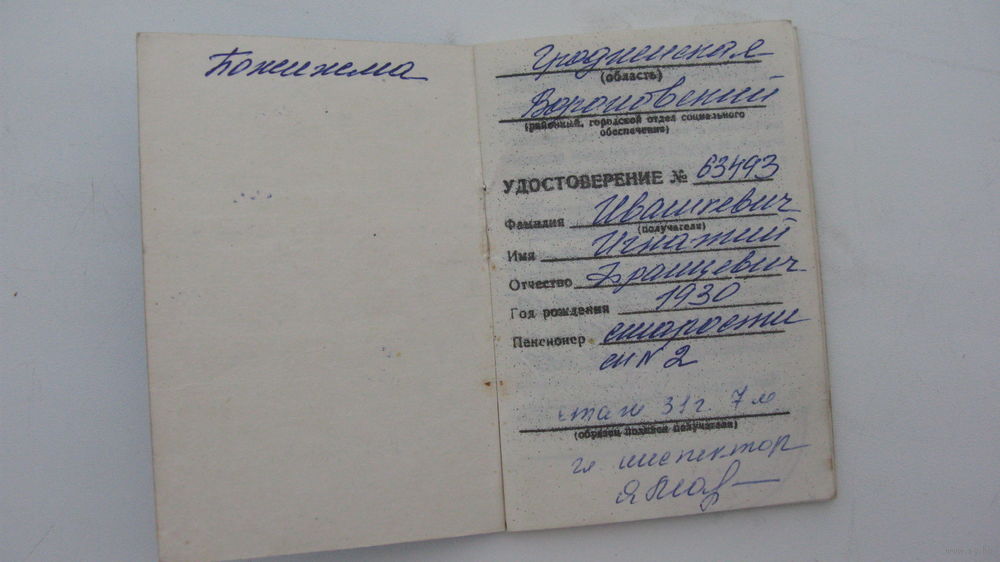 Пожизнена
Гродненская
(область)
Вороновский
(районный, городской отдел социального
обеспечения)
УДОСТОВЕРЕНИЕ № 63493
Фамилия Ивашкевич
(получателя)
Имя Игнатий
Отчество Францевич
Год рождения 1930
Пенсионер старости
сп № 2
стаж 31 г. 7 м
(образец подписи получателя)
гл инспектор